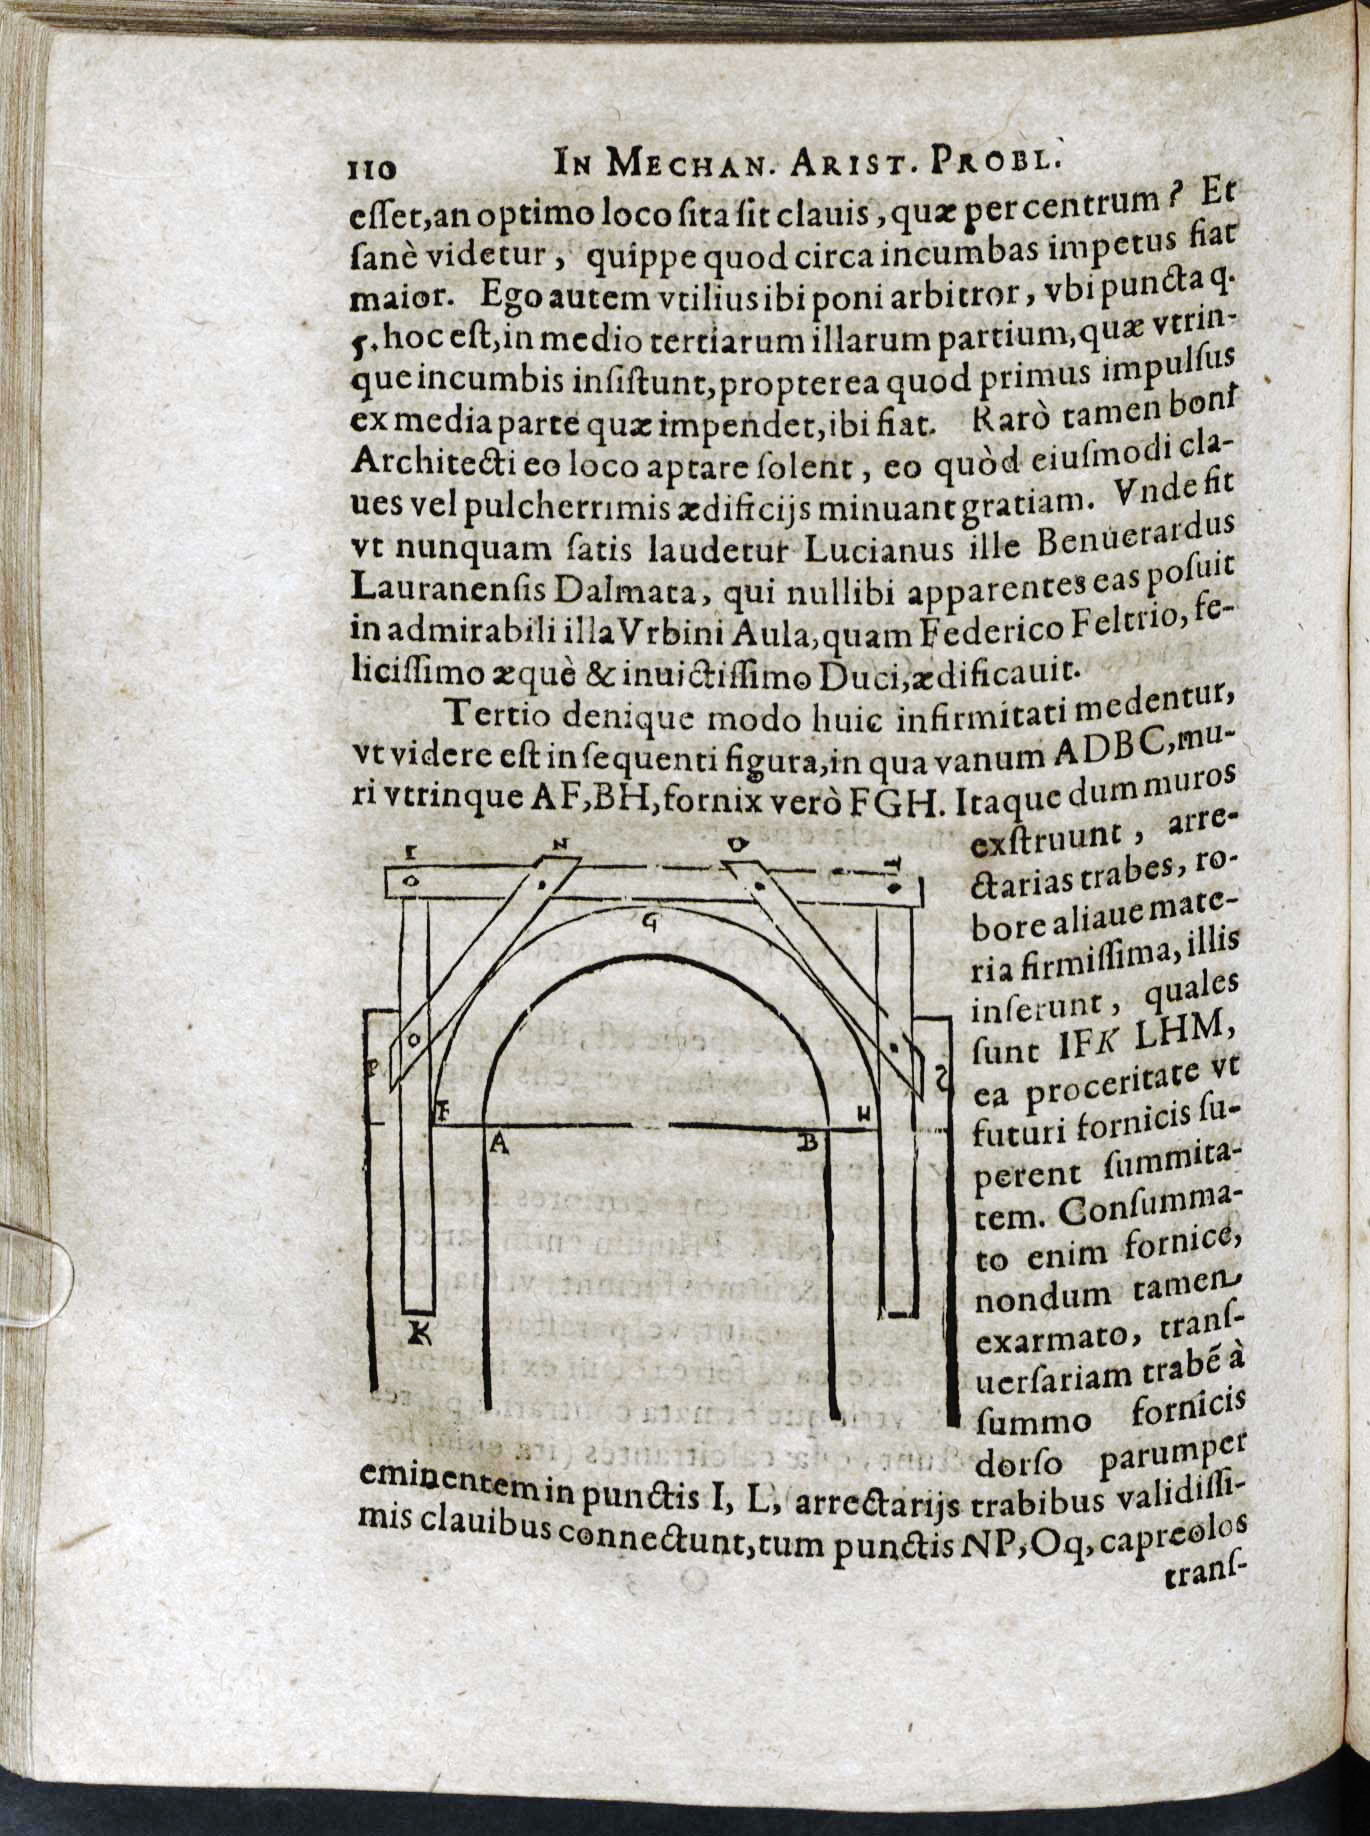 110 IN MECHAN. ARIST. PROBL.
eſſet, an optimo loco ſita ſit clauis, quæ per centrum? Et
ſanè videtur, quippe quod circa incumbas impetus fiat
maior. Ego autem vtilius ibi poni arbitror, vbi puncta q.
5. hoc eſt, in medio tertiarum illarum partium, quæ vtrin-
que incumbis inſiſtunt, propterea quod primus impulſus
ex media parte quæ impendet, ibi fiat. Rarò tamen boni
Architecti eo loco aptare ſolent, eo quòd eiuſmodi cla-
ues vel pulcherrimis ædificijs minuant gratiam. Vnde fit
vt nunquam ſatis laudetur Lucianus ille Benuerardus
Lauranenſis Dalmata, qui nullibi apparentes eas poſuit
in admirabili illa Vrbini Aula, quam Federico Feltrio, fe-
liciſſimo æquè & inuictiſſimo Duci, ædificauit.
Tertio denique modo huic infirmitati medentur,
vt videre eſt in ſequenti figura, in qua vanum ADBC, mu-
ri vtrinque AF, BH, fornix verò FGH. Itaque dum muros
exſtruunt, arre-
ctarias trabes, ro-
bore aliaue mate-
ria firmiſſima, illis
inſerunt, quales
ſunt IFK LHM,
ea proceritate vt
futuri fornicis ſu-
perent ſummita-
tem. Conſumma-
to enim fornice,
nondum tamen
exarmato, tranſ-
uerſariam trabẽ à
ſummo fornicis
dorſo parumper
I N O
G
P
F H
A B
K
eminentem in punctis I, L, arrectarijs trabibus validiſſi-
mis clauibus connectunt, tum punctis NP, Oq, capreolos
tranſ-